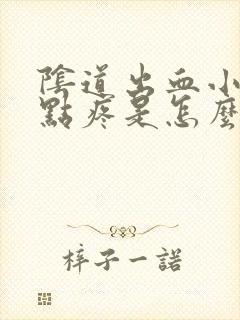 陰道出血小
點疼是怎麼
梓子一諾